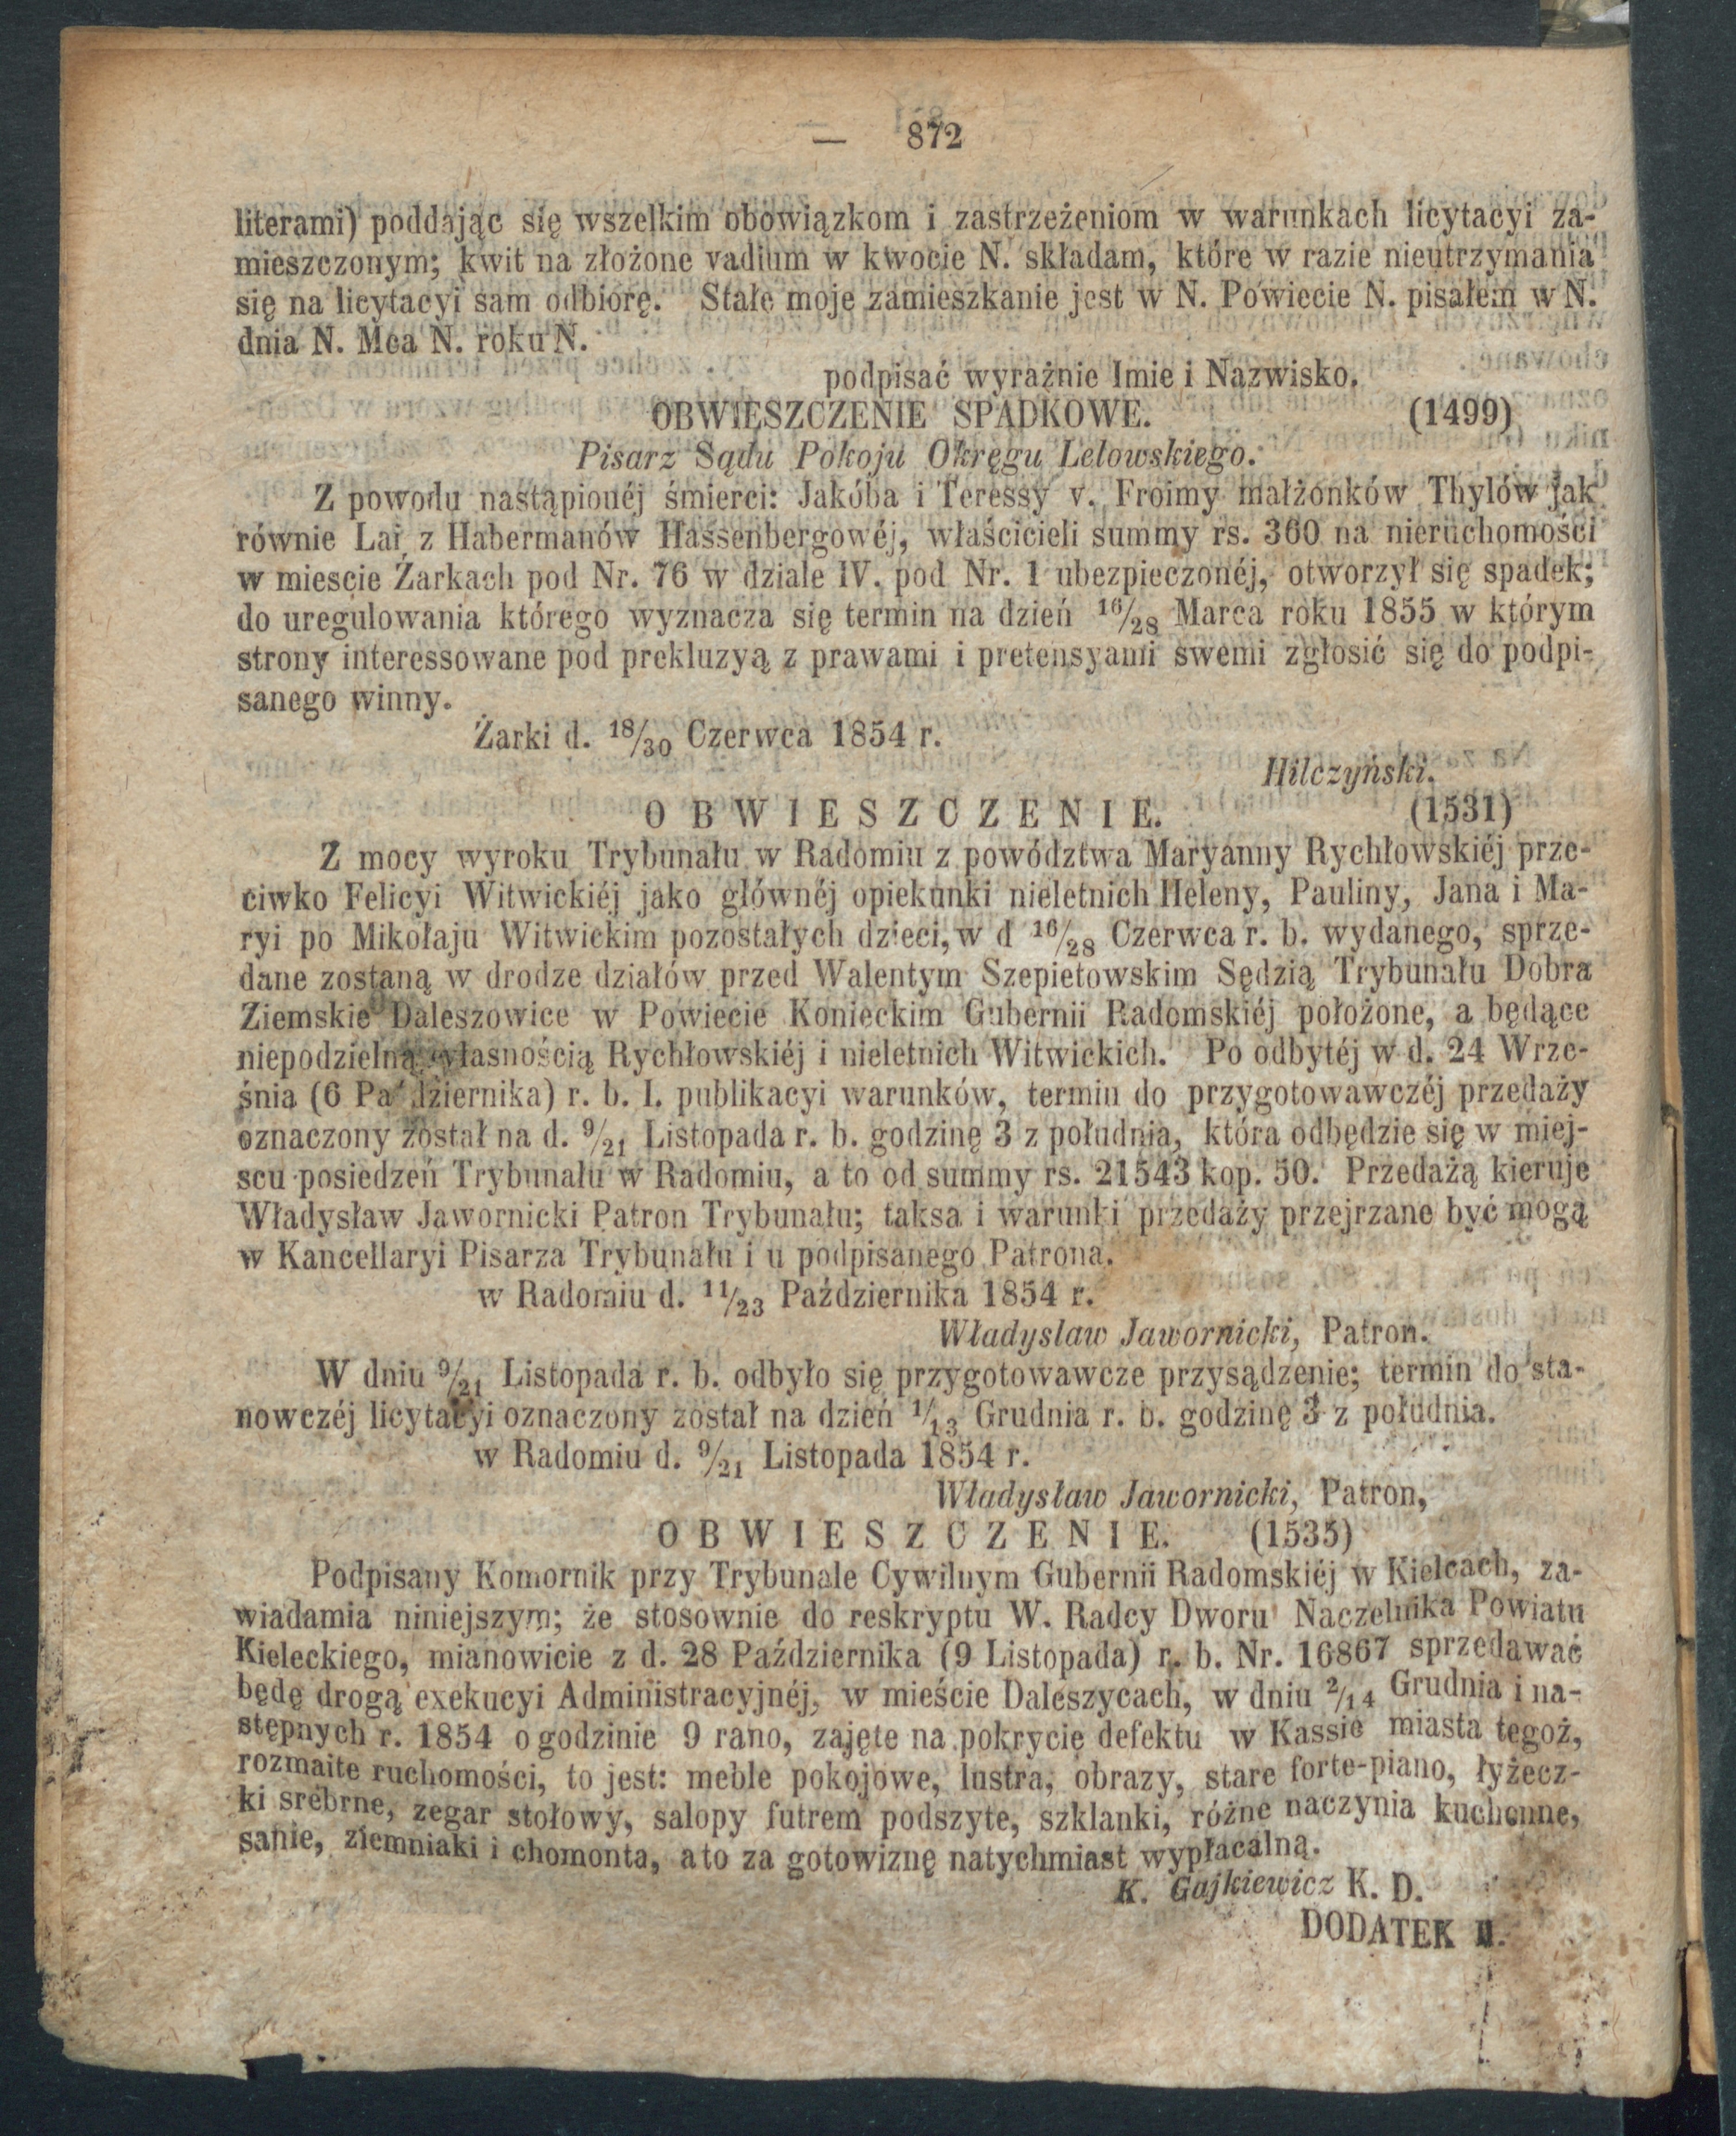 — 872
literami) poddając się wszelkim obowiązkom i zastrzeżeniom w warunkach licytacyi za-
mieszczonym; kwit na złożone vadium w kwocie N. składam, które w razie nieutrzymania
się na licytacyi sam odbiorę. Stałe moje zamieszkanie jest w N. Powiecie N. pisałem w N.
dnia N. Mca N. roku N.
podpisać wyraźnie Imie i Nazwisko.
OBWIESZCZENIE SPADKOWE. (1499)
Pisarz Sądu Pokoju Okręgu Lelowskiego.
Z powodu nastąpionéj śmierci: Jakóba i Teressy v. Froimy małżonków Thylów jak
równie Lai z Habermanów Hassenbergowéj, właścicieli summy rs. 360 na nieruchomości
w miescie Żarkach pod Nr. 76 w dziale IV. pod Nr. 1 ubezpieczonéj, otworzył się spadek;
do uregulowania którego wyznacza się termin na dzień 16/28 Marca roku 1855 w którym
strony interessowane pod prekluzyą z prawami i pretensyami swemi zgłosić się do podpi-
sanego winny.
Żarki d. 18/30 Czerwca 1854 r.
Hilczyński.
OBWIESZCZENIE. (1531)
Z mocy wyroku Trybunału w Radomiu z powództwa Maryanny Rychłowskiéj prze-
ciwko Felicyi Witwickiéj jako głównéj opiekunki nieletnich Heleny, Pauliny, Jana i Ma-
ryi po Mikołaju Witwickim pozostałych dzieci, w d 16/28 Czerwca r. b. wydanego, sprze-
dane zostaną w drodze działów przed Walentym Szepietowskim Sędzią Trybunału Dobra
Ziemskie Daleszowice w Powiecie Konieckim Gubernii Radomskiéj położone, a będące
niepodzielną własnością Rychłowskiéj i nieletnich Witwickich. Po odbytéj w d. 24 Wrze-
śnia (6 Października) r. b. I. publikacyi warunków, termin do przygotowawczéj przedaży
oznaczony został na d. 9/21 Listopada r. b. godzinę 3 z południa, która odbędzie się w miej-
scu posiedzeń Trybunału w Radomiu, a to od summy rs. 21543 kop. 50. Przedażą kieruje
Władysław Jawornicki Patron Trybunału; taksa i warunki przedaży przejrzane być mogą
w Kancellaryi Pisarza Trybunału i u podpisanego Patrona.
w Radomiu d. 11/23 Października 1854 r.
Władyslaw Jawornicki, Patron.
W dniu 9/21 Listopada r. b. odbyło się przygotowawcze przysądzenie; termin do sta-
nowczéj licytacyi oznaczony został na dzień 1/13 Grudnia r. b. godzinę 3 z południa.
w Radomiu d. 9/21 Listopada 1854 r.
Władysław Jawornicki, Patron,
OBWIESZCZENIE. (1535)
Podpisany Komornik przy Trybunale Cywilnym Gubernii Radomskiéj w Kielcach, za-
wiadamia niniejszym; że stosownie do reskryptu W. Radcy Dworu Naczelnika Powiatu
Kieleckiego, mianowicie z d. 28 Października (9 Listopada) r. b. Nr. 16867 sprzedawać
będę drogą exekucyi Administracyjnéj, w mieście Daleszycach, w dniu 2/14 Grudnia i na-
stępnych r. 1854 o godzinie 9 rano, zajęte na pokrycie defektu w Kassie miasta tegoż,
rozmaite ruchomości, to jest: meble pokojowe, lustra, obrazy, stare forte-piano, łyżecz-
ki srébrne, zegar stołowy, salopy futrem podszyte, szklanki, różne naczynia kuchenne,
sanie, ziemniaki i chomonta, a to za gotowiznę natychmiast wypłacalną.
K. Gajkiewicz K. D.
DODATEK II.